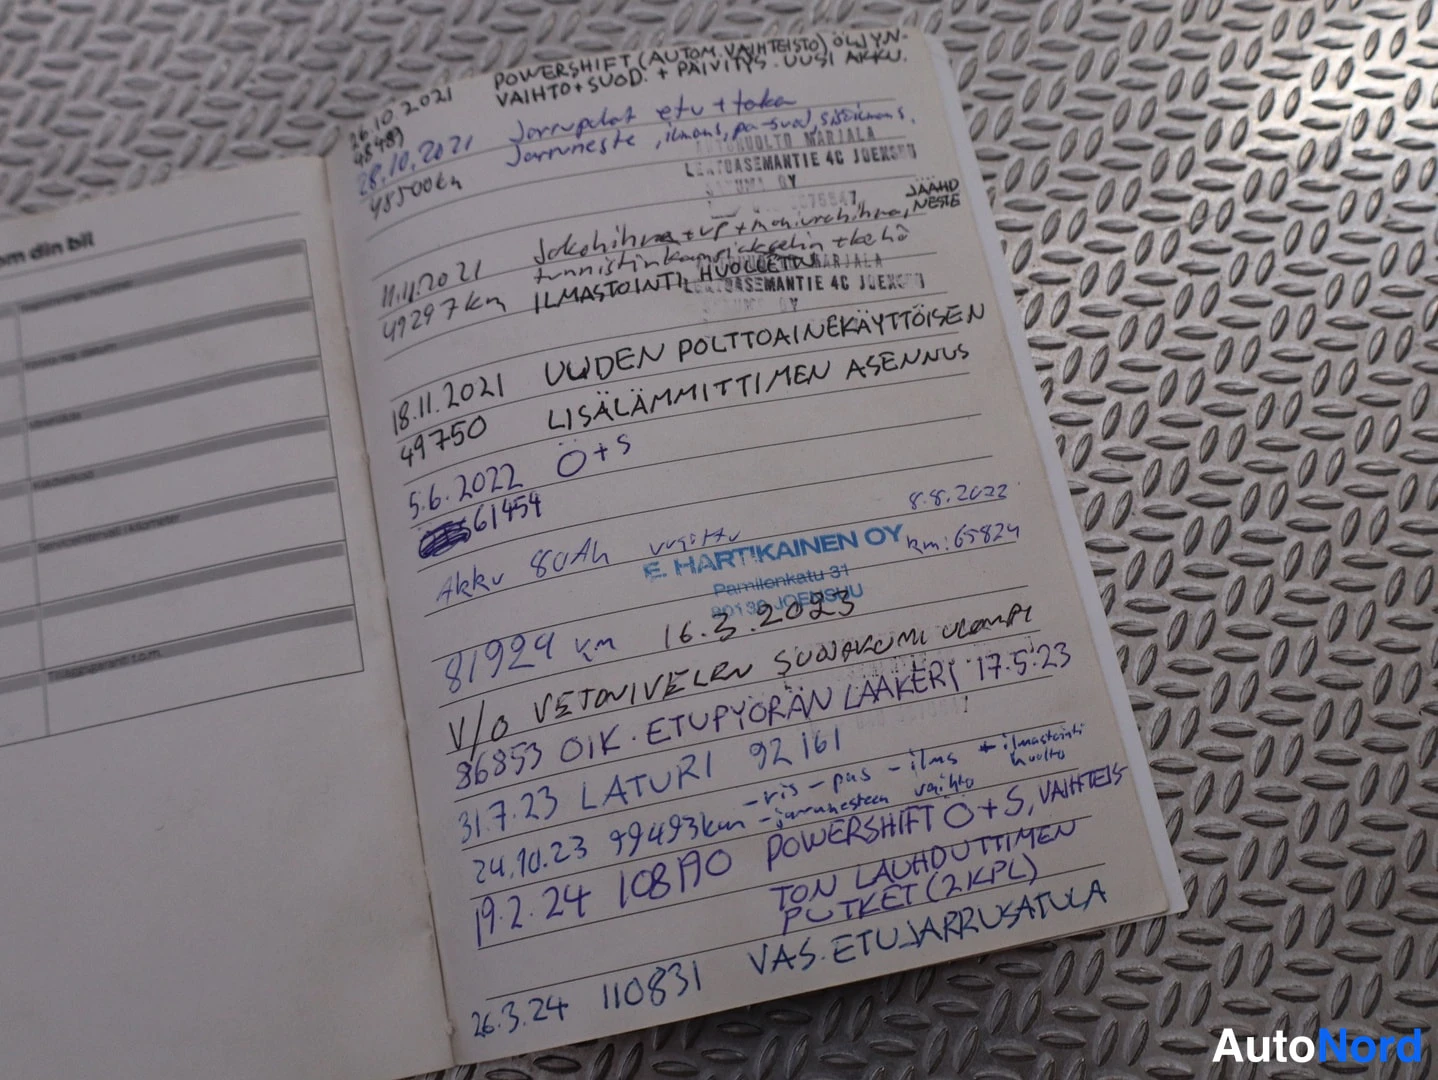 om din bil
POWERSHIFT (AUTOM. VAIHTEISTO) ÖLJYN-
26.10.2021 VAIHTO + SUOD. + PÄIVITYS. UUSI AKKU.
48489
28.10.2021 Jarrupalat etu + taka
48500km Jarruneste, ilmans, pa-suod, sisäilmans.
AUTOHUOLTO MARJALA
LENTOASEMANTIE 4C JOENSUU
OY
JÄÄHD
NESTE
11.11.2021 Jakohihna + vp + moniurahihna,
49297km tunnistinkampiakselin + kehä
ILMASTOINTI HUOLLETTU
MARJALA
LENTOASEMANTIE 4C JOENSUU
OY
18.11.2021 UUDEN POLTTOAINEKÄYTTÖISEN
49750 LISÄLÄMMITTIMEN ASENNUS
5.6.2022 Ö+S
61454
8.8.2022
Akku 80Ah km: 65824
E. HARTIKAINEN OY
Pamilonkatu 31
80130 JOENSUU
81924 km 16.3.2023
V/O VETONIVELEN SUOJAKUMI ULOMPI
86853 OIK. ETUPYÖRÄN LAAKERI 17.5.23
31.7.23 LATURI 92161
24.10.23 99493km - ris - pas - ilms + ilmastointi
- jarrunesteen vaihto huolto
19.2.24 108190 POWERSHIFT Ö+S, VAIHTEIS
TON LAUHDUTTIMEN
PUTKET (2KPL)
26.3.24 110831 VAS. ETUJARRUSATULA
AutoNord